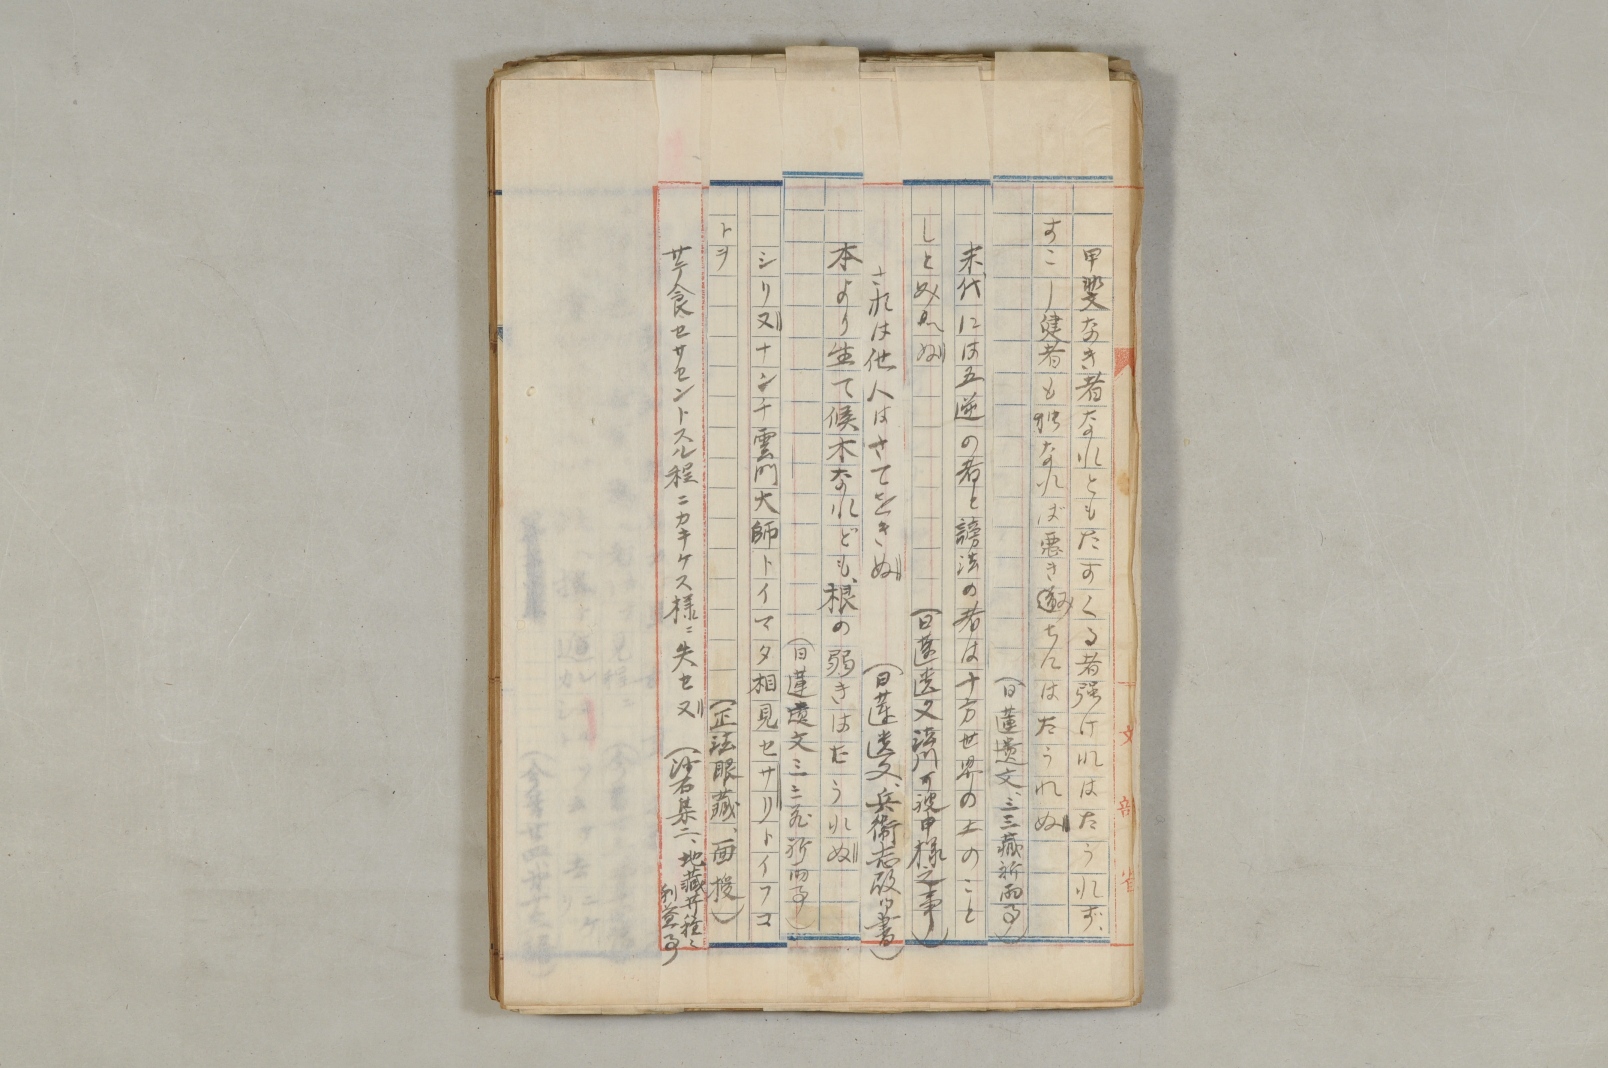 甲斐なき者なれともたすくる者强けれはたうれず、
すこし健者も獨なれば悪きみちにはたうれぬ
(日蓮遺文、三三藏祈雨事)
末代には五逆の者と謗法の者は十方世界の土のこと
しとみへぬ
(日蓮遺文 法門可被申様之事)
これは他人はさてをきぬ
(日蓮遺文、兵衛志殿御書)
本より生て候木なれども、根の弱きはたうれぬ
(日蓮遺文三三蔵祈雨事)
シリヌナンチ雲門大師トイマタ相見セサリトイフコ
トヲ
(正法眼藏、面授)
サテ食セサセントスル程ニカキケス様ニ失セヌ
(沙石集二、地藏菩種々利益事)
文部省